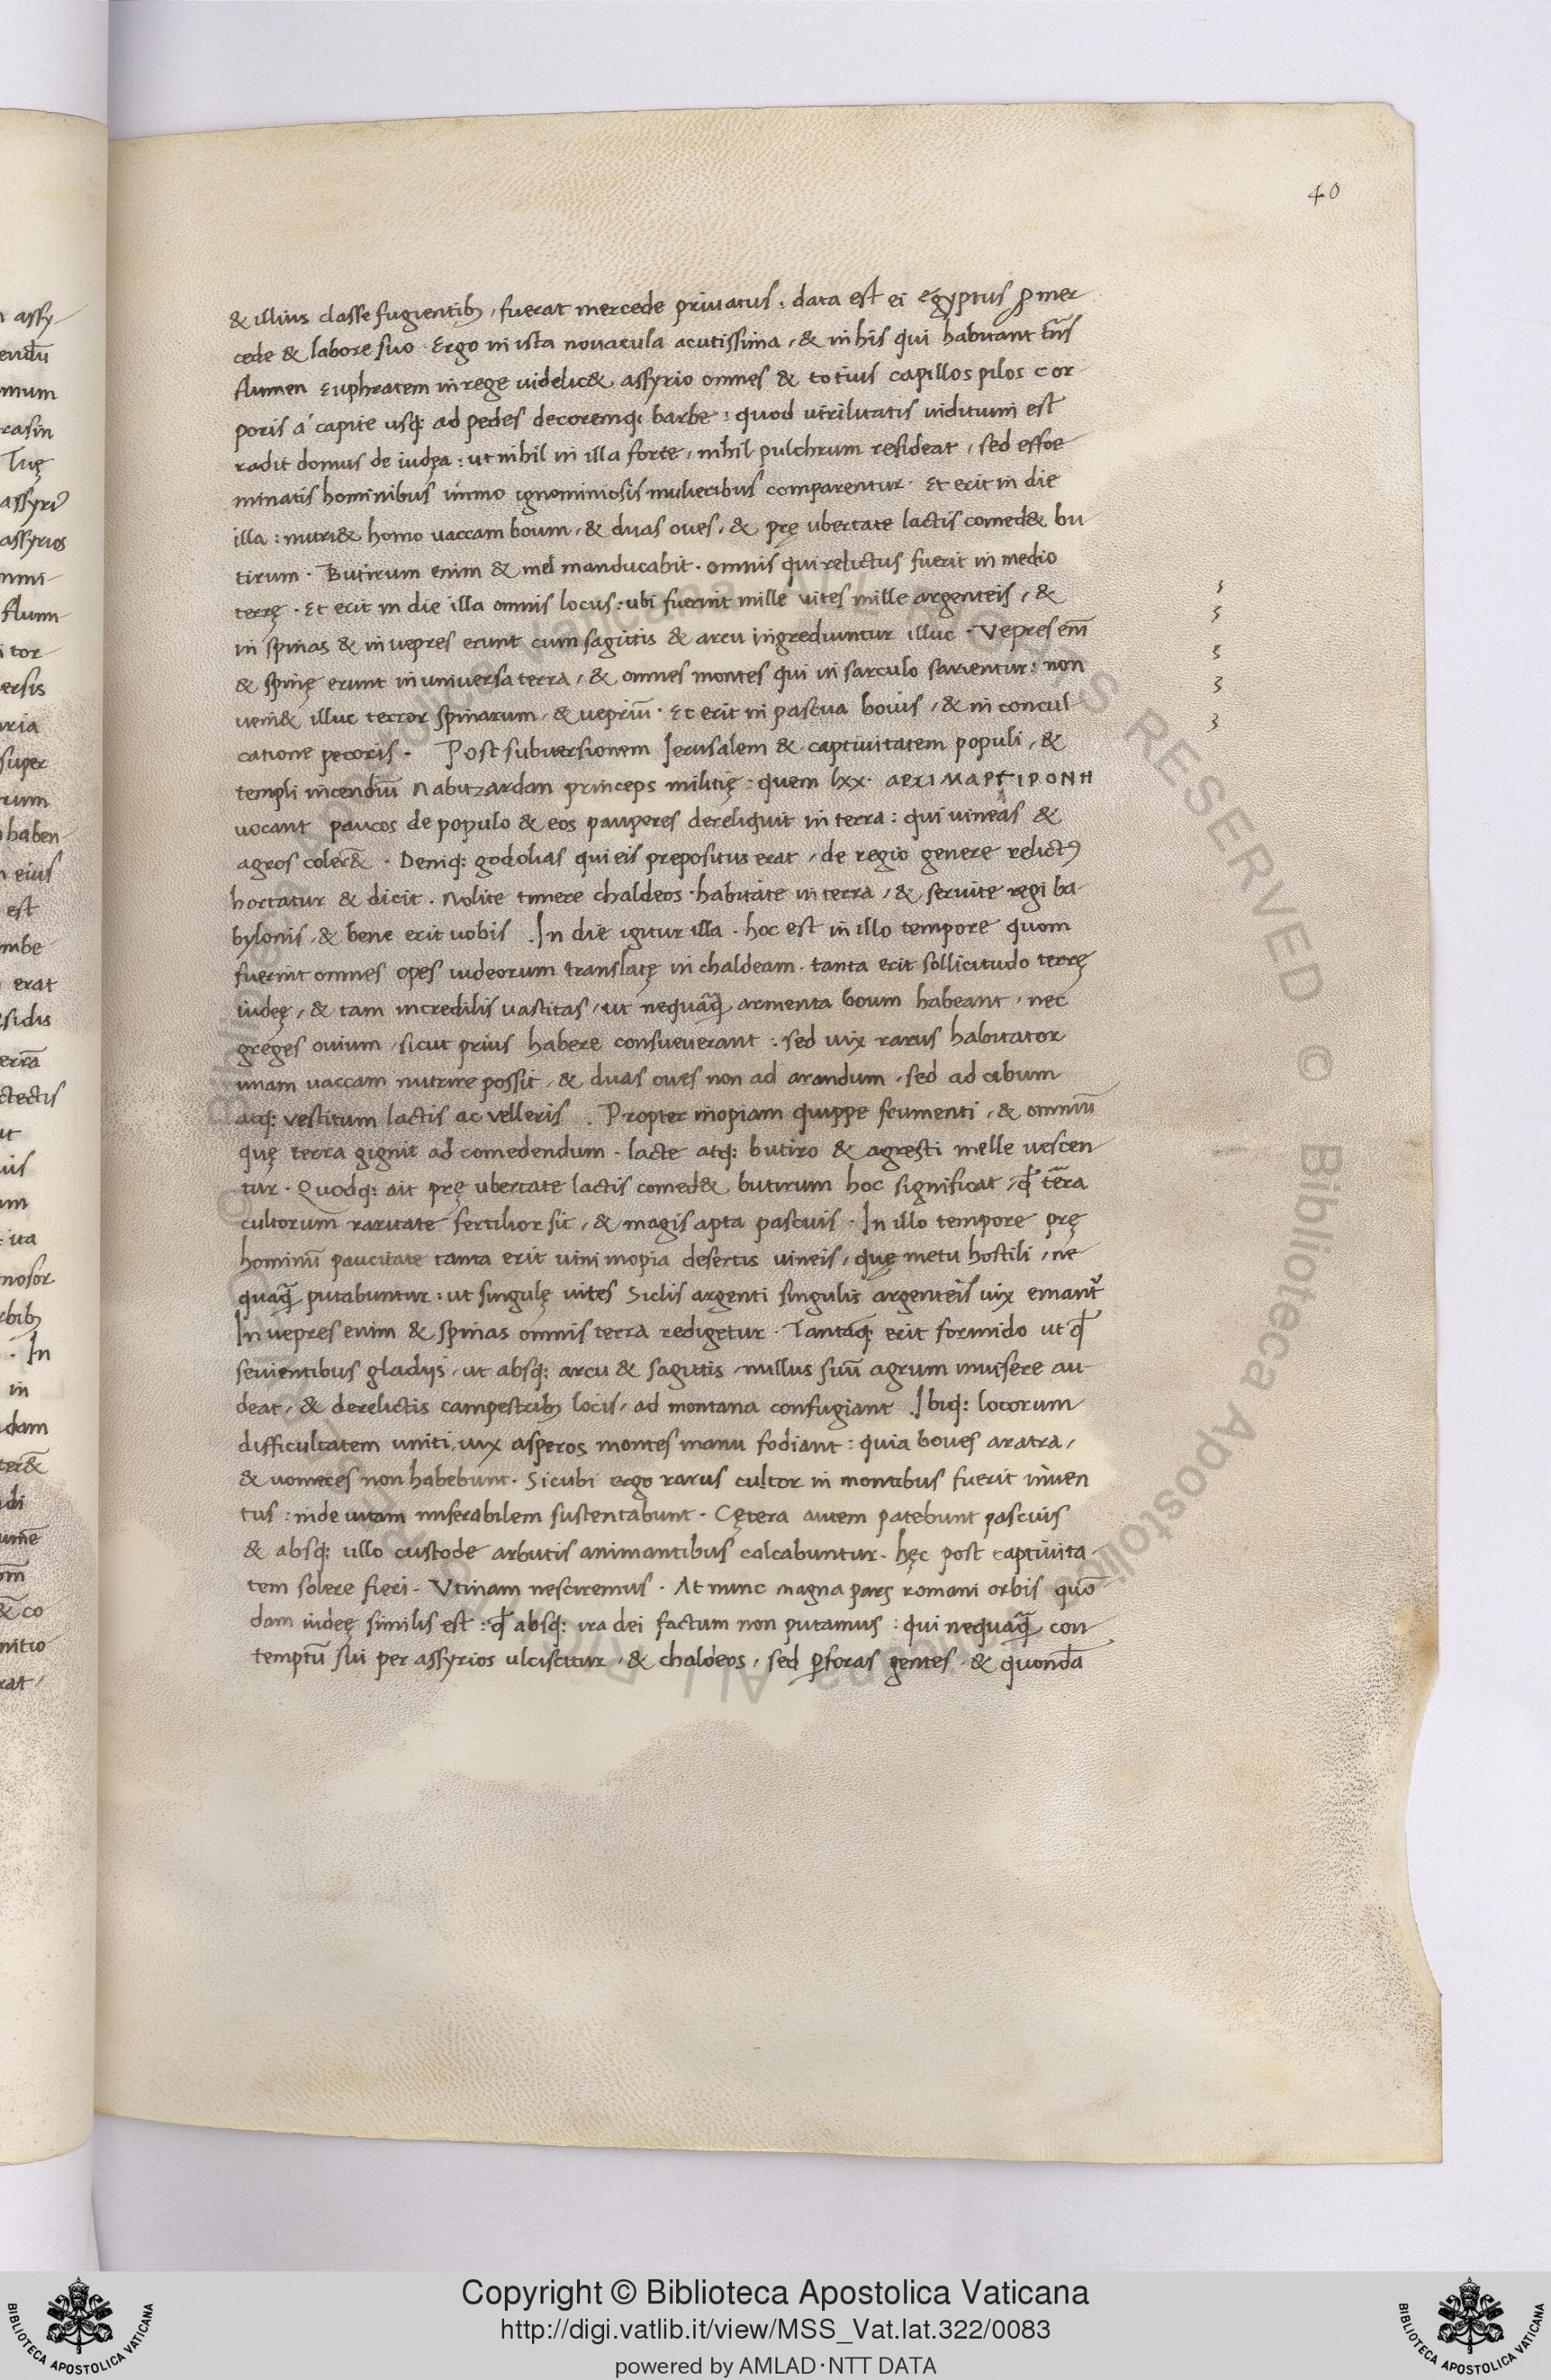 40
& illius classe fugientibꝫ, fuerat mercede priuatus: data est ei egyptus ꝓ mer
cede & labore suo. Ergo in ista nouacula acutissima, & in his qui habitant trãs
flumen Euphratem in rege uidelic& assyrio omnes & totius capillos pilos cor
poris á capite usq: ad pedes decoremq: barbe: quod uirilitatis inditium est
radit domus de iudęa: ut nihil in illa forte, nihil pulchrum resideat, sed effoe
minatis hominibus immo ignominiosis mulieribus comparentur. Et erit in die
illa: nutri& homo uaccam boum, & duas oues, & prę ubertate lactis comed& bu
tirum. Butirum enim & mel manducabit. omnis qui relictus fuerit in medio
terrę. Et erit in die illa omnis locus: ubi fuerint mille uites mille argenteis, &
in spinas & in uepres erunt cum sagittis & arcu ingrediuntur illuc. Vepres em̃
& spinę erunt in uniuersa terra, & omnes montes qui in sarculo sarientur: non
ueni& illuc terror spinarum, & ueprium̅. Et erit in pascua bouis, & in concul
catione pecoris. Post subuersionem Ierusalem & captiuitatem populi, &
templi incendiū Nabuzardan princeps militię: quem lxx. ΑΡΧΙΜΑΡΓΙΡΟΝΗ
uocant paucos de populo & eos pauperes dereliquit in terra: qui uineas &
agros coler&. Deniq: godolias qui eis prepositus erat, de regio genere relictꝰ
hortatur & dicit. Nolite timere chaldeos. habitate in terra, & seruite regi ba
bylonis. & bene erit uobis. In die igitur illa. hoc est in illo tempore quom
fuerint omnes opes iudeorum translatę in chaldeam. tanta erit sollicitudo terrę
iudeę, & tam incredilis uastitas, ut nequaq̃ armenta boum habeant, nec
greges ouium, sicut prius habere consueuerant: sed uix rarus habitator
unam uaccam nutrire possit, & duas oues non ad arandum, sed ad cibum
atq: vestitum lactis ac velleris. Propter inopiam quippe frumenti, & omniū
quę terra gignit ad comedendum. lacte atq: butiro & agresti melle uescen
tur. Quodq: ait prę ubertate lactis comed& butirum hoc significat, qđ tẽra
cultorum raritate fertilior sit, & magis apta pascuis. In illo tempore prę
hominū paucitate tanta erit uini inopia desertis uineis, quę metu hostili, ne
quaq̃ putabuntur: ut singulę uites Siclis argenti singulis argenteis uix emant᷑
In uepres enim & spinas omnis terra redigetur. Tantaq: erit formido ut qđ
seuientibus gladijs, ut absq: arcu & sagittis, nullus suū agrum inuisere au
deat, & derelictis campestribꝫ locis, ad montana confugiant. Ibiq: locorum
difficultatem uniti, uix asperos montes manu fodiant: quia boues aratra,
& uomeres non habebunt. Sicubi ergo rarus cultor in montibus fuerit inuen
tus: inde uitam miserabilem sustentabunt. Cętera autem patebunt pascuis
& absq: ullo custode arbutis animantibus calcabuntur. hęc post captiuita
tem solere fieri. Vtinam nesciremus. At nunc magna pars romani orbis quō
dam iudeę similis est: qđ absq: ira dei factum non putamus: qui nequaq̃ con
temptū sui per assyrios ulciscitur, & chaldeos, sed ꝑ foras gentes, & quondã
Copyright © Biblioteca Apostolica Vaticana
http://digi.vatlib.it/view/MSS_Vat.lat.322/0083
powered by AMLAD·NTT DATA